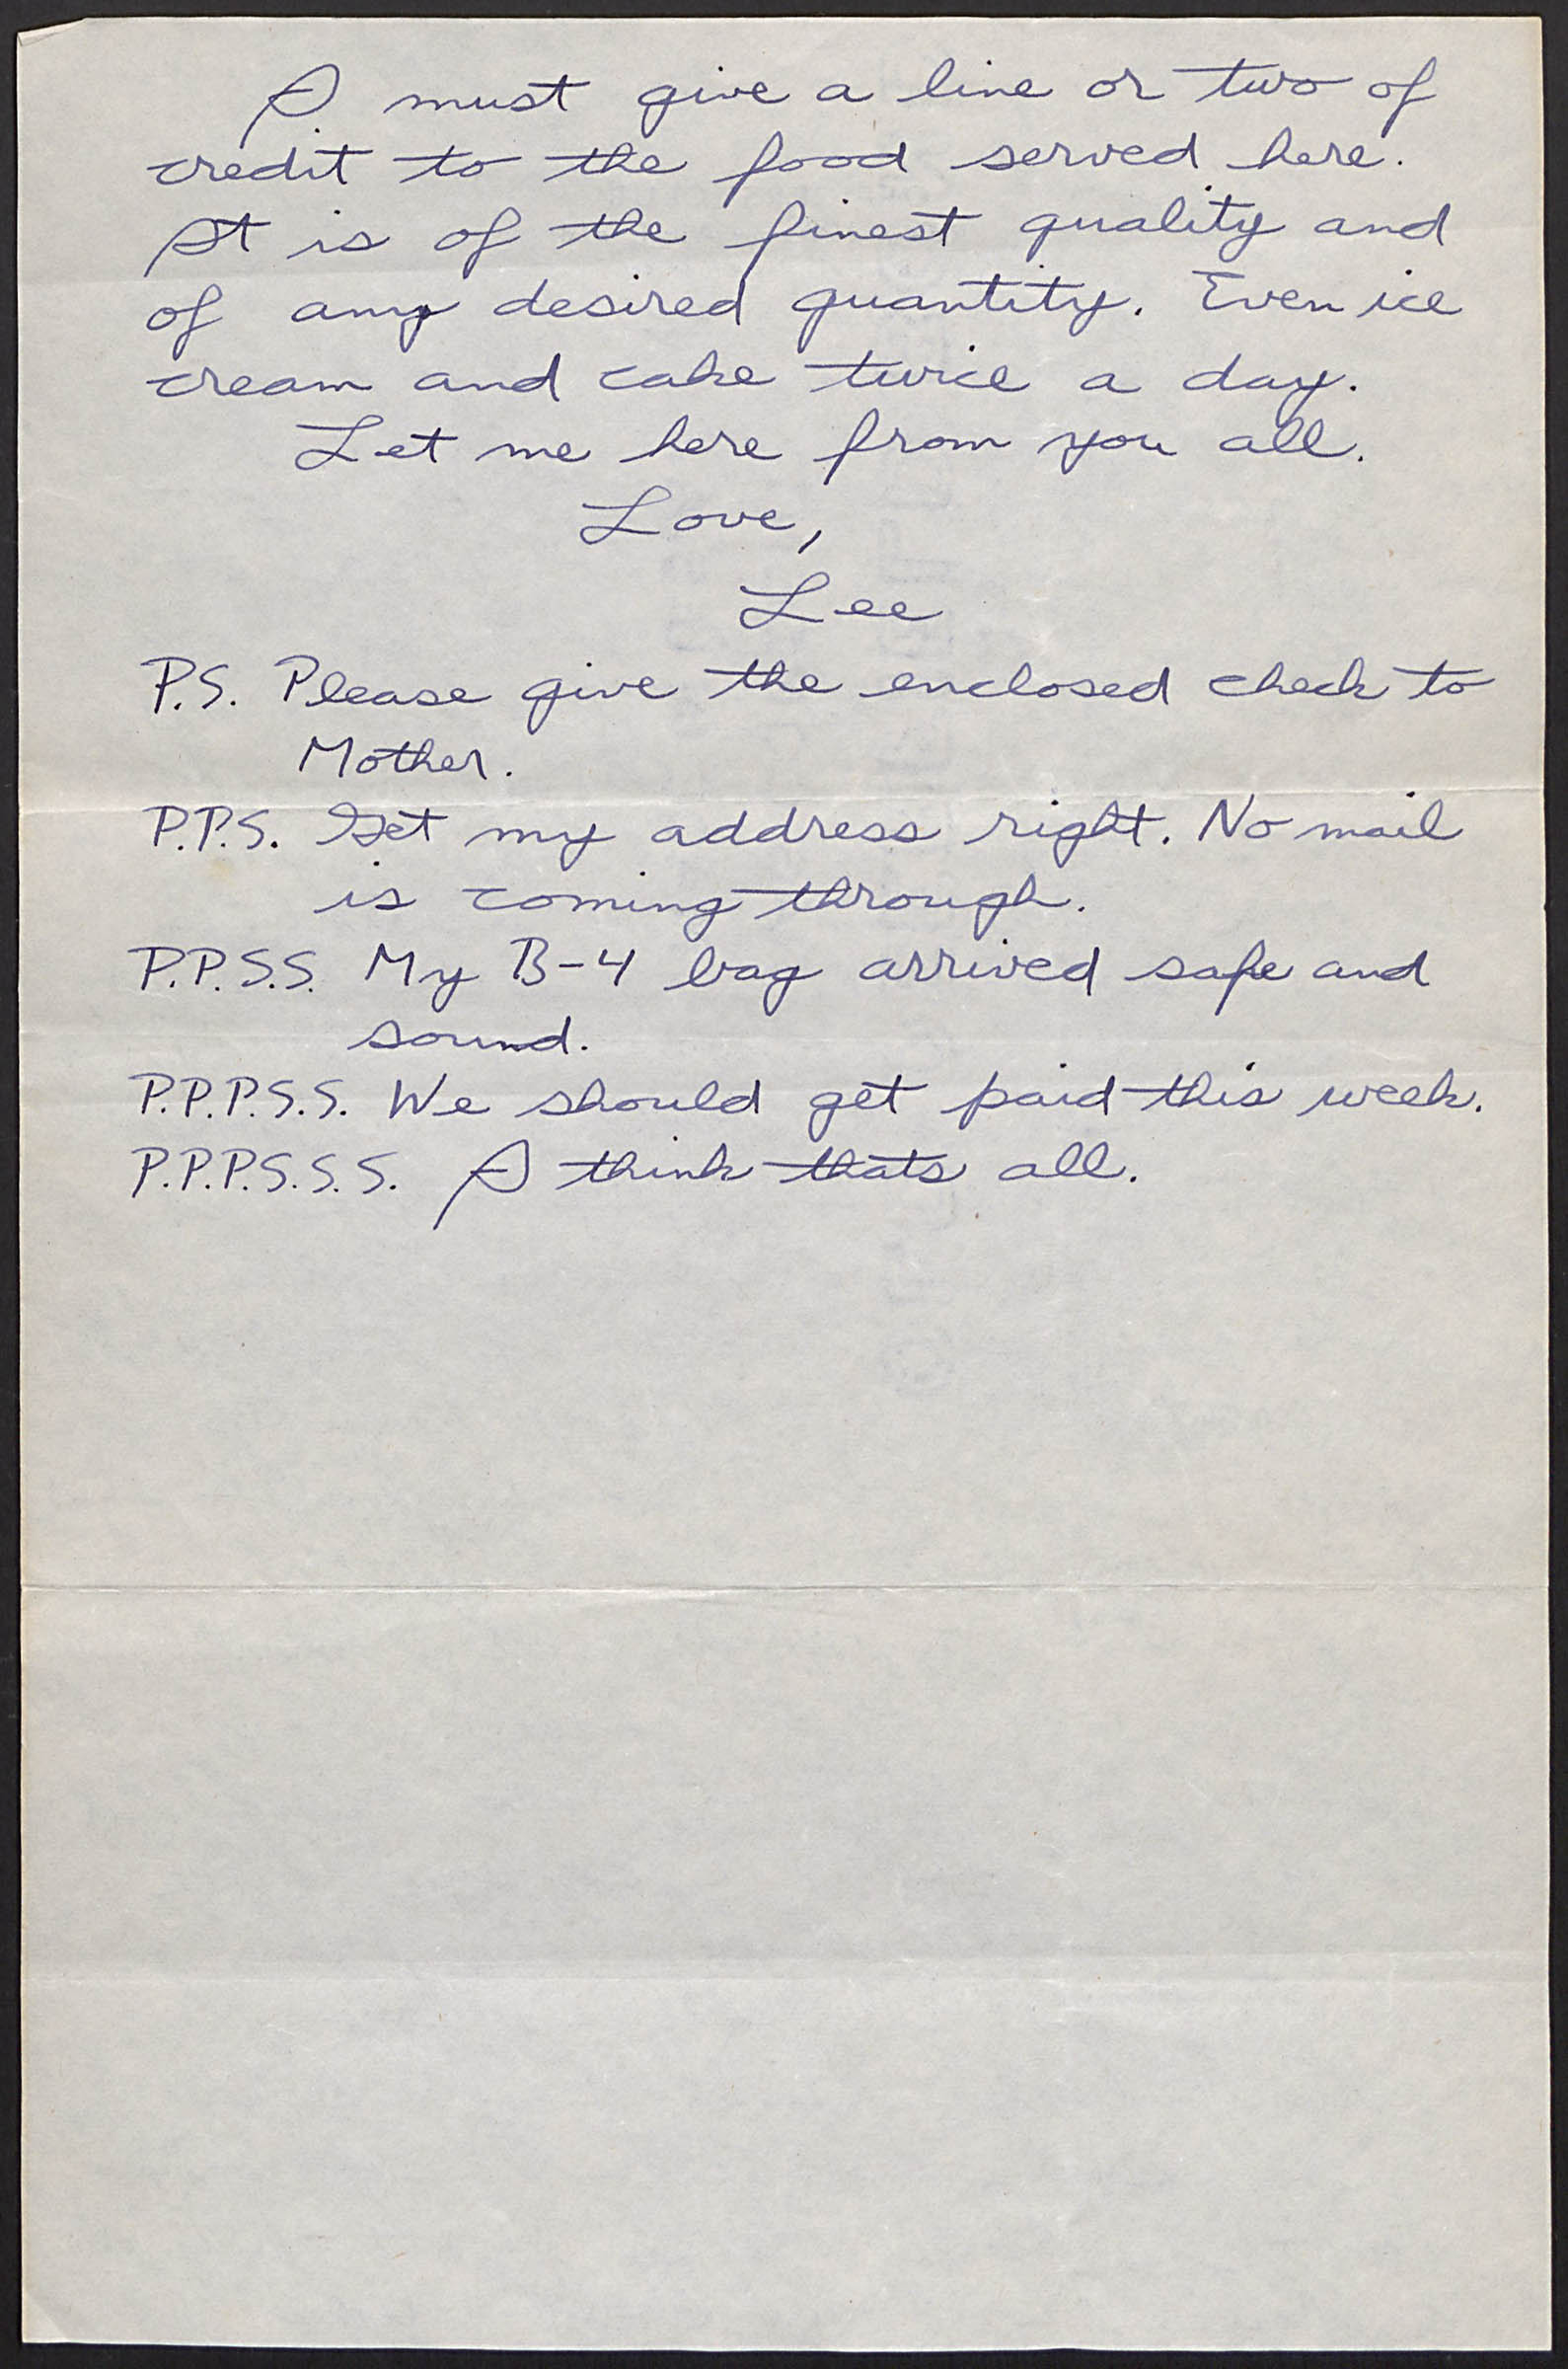 I must give a line or two of
credit to the food served here.
It is of the finest quality and
of any desired quantity. Even ice
cream and cake twice a day.
Let me here from you all.
Love,
Lee
P.S. Please give the enclosed check to
Mother.
P.P.S. Get my address right. No mail
is coming through.
P.P.S.S. My B-4 bag arrived safe and
sound.
P.P.P.S.S. We should get paid this week.
P.P.P.S.S.S. I think thats all.